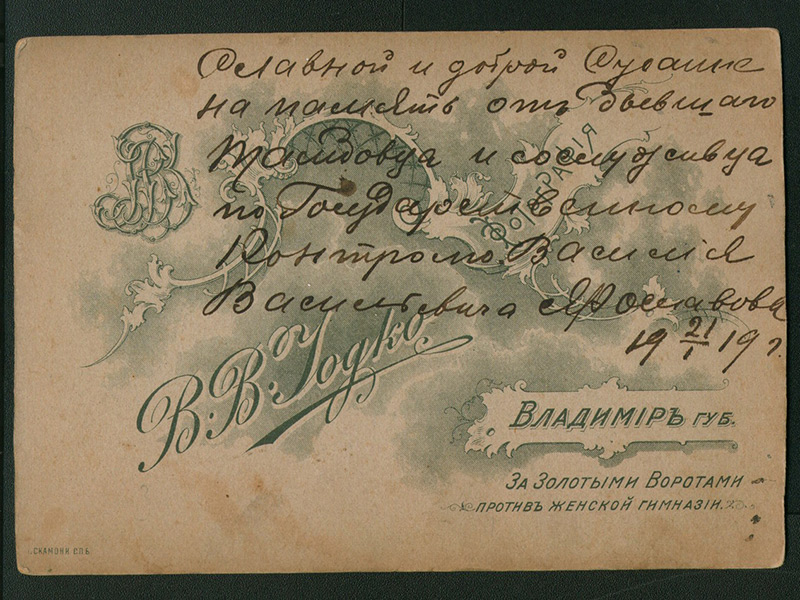 Славной и доброй Сусанне
на память отъ бывшаго
Тамбовца и сослуживца
по Государственному
Контролю Василія
Васильевича Ярославова
19 21/I 19 г.
ФОТОГРАФІЯ
В. В. Іодко
ВЛАДИМІРЪ ГУБ.
ЗА ЗОЛОТЫМИ ВОРОТАМИ
ПРОТИВЪ ЖЕНСКОЙ ГИМНАЗІИ.
СКАМОНИ СПБ